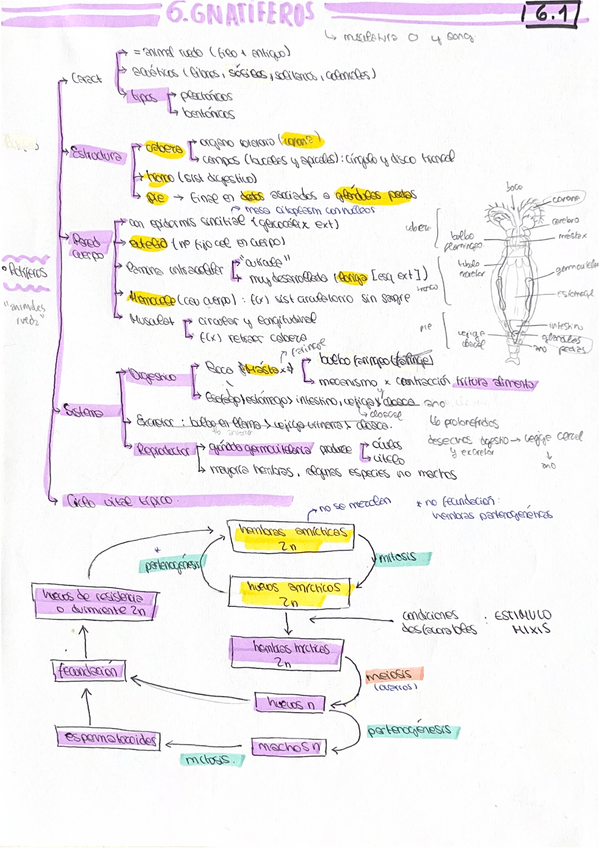 6. GNATIFEROS
6.1
musculatura O y long
Caract
= animal rueda (tipo + antiguo)
acuáticos (libres, sésiles, solitarios, coloniales)
tipos
planctónicos
bentónicos
Estructura
cabeza
órgano rotatorio (corona)
campos (bucales y apicales): cíngulo y disco trocal
tronco (sist digestivo)
pie → final en dedos asociados a glándulas pedias
masa citoplasm con núcleos
Pared cuerpo
con epidermis sincitial (glucocálix ext)
eutelia (nº fijo cel en cuerpo)
lámina intracelular
"cutícula"
muy desarrollada loriga [esq ext]
Hemocele (cav cuerpo): f(x) sist circulatorio sin sangre
Musculat
circular y longitudinal
f(x) retraer cabeza
• Rotíferos
"animales rueda"
Sistema
Digestivo
Boca
Mástax
bulbo faríngeo (faringe)
mecanismo x contracción tritura alimento
Esófago, estómago, intestino, vejiga, cloaca ano
cloacal
Excretor: bulbo en llama, vejiga urinaria, cloaca.
protonefridios
desechos digesto y excretor → vejiga cloacal
↓
ano
Reproductor
glándula germovitelaria produce
óvulos
vitelo
mayoría hembras, algunas especies no machos
Ciclo vital típico.
boca
corona
cabeza
cerebro
bulbo flamígero
mástax
túbulo excretor
germovitelario
tronco
estómago
pie
vejiga cloacal
intestino
glándulas pedias
ano
no se mezclan
* no fecundación: hembras partenogenéticas
hembras amícticas
2n
*
partenogénesis
mitosis
huevos amícticos
2n
condiciones desfavorables : ESTÍMULO MIXIS
huevos de resistencia o durmiente 2n
hembras mícticas
2n
meiosis
(ovarios)
fecundación
huevos n
partenogénesis
espermatozoides
mitosis.
machos n